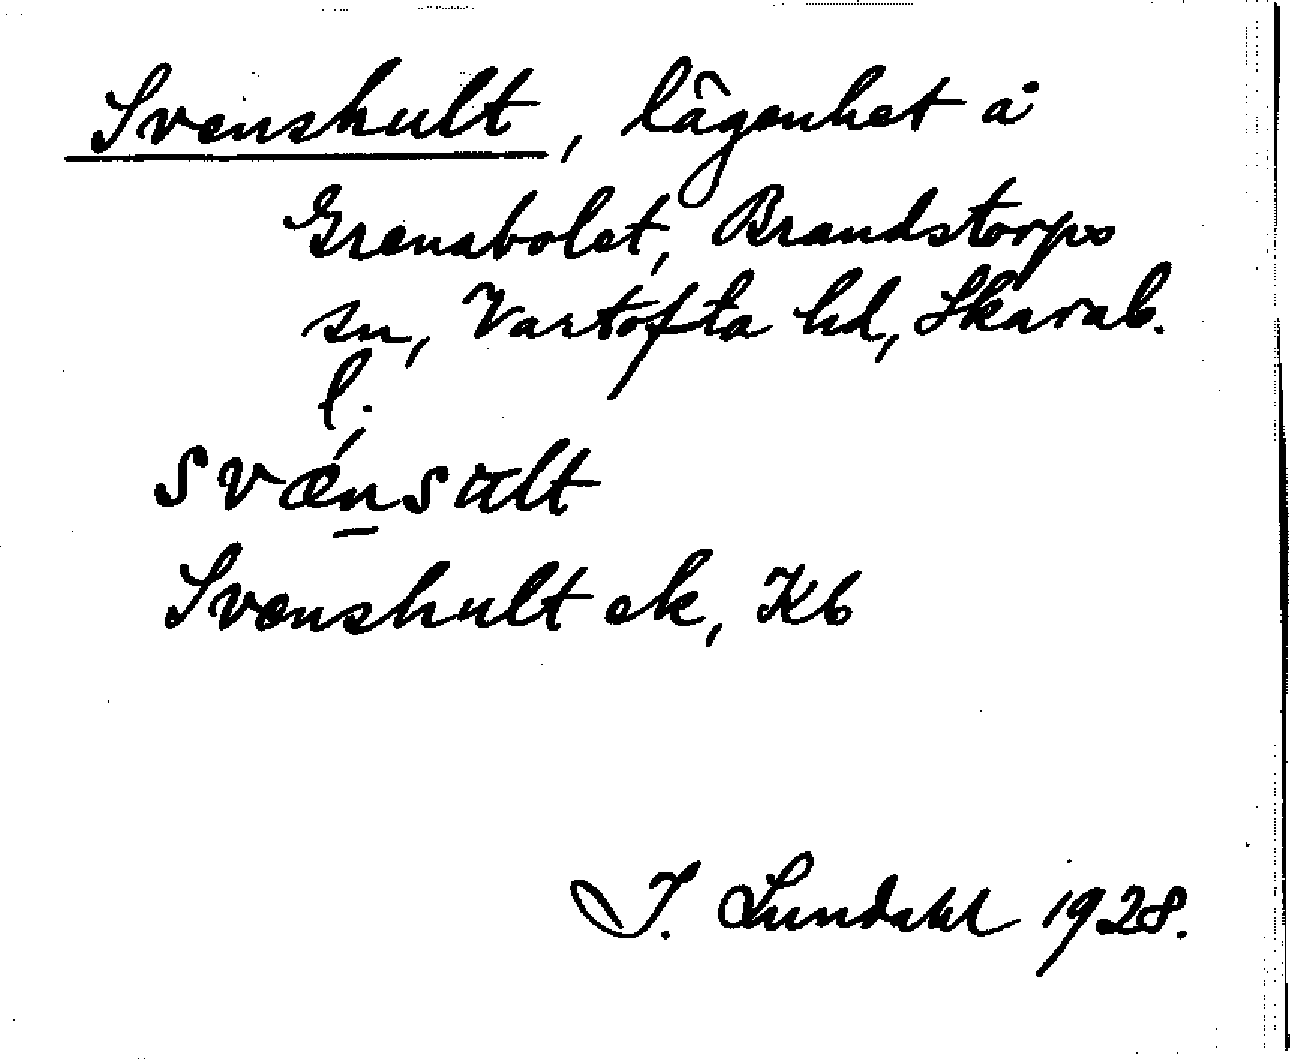 Svenshult, lägenhet å
Grenabolet, Brandstorps
sn, Vartofta hd, Skarab.
l.
svǽn̲salt
Svenshult ek, Kb
I. Lundahl 1928.